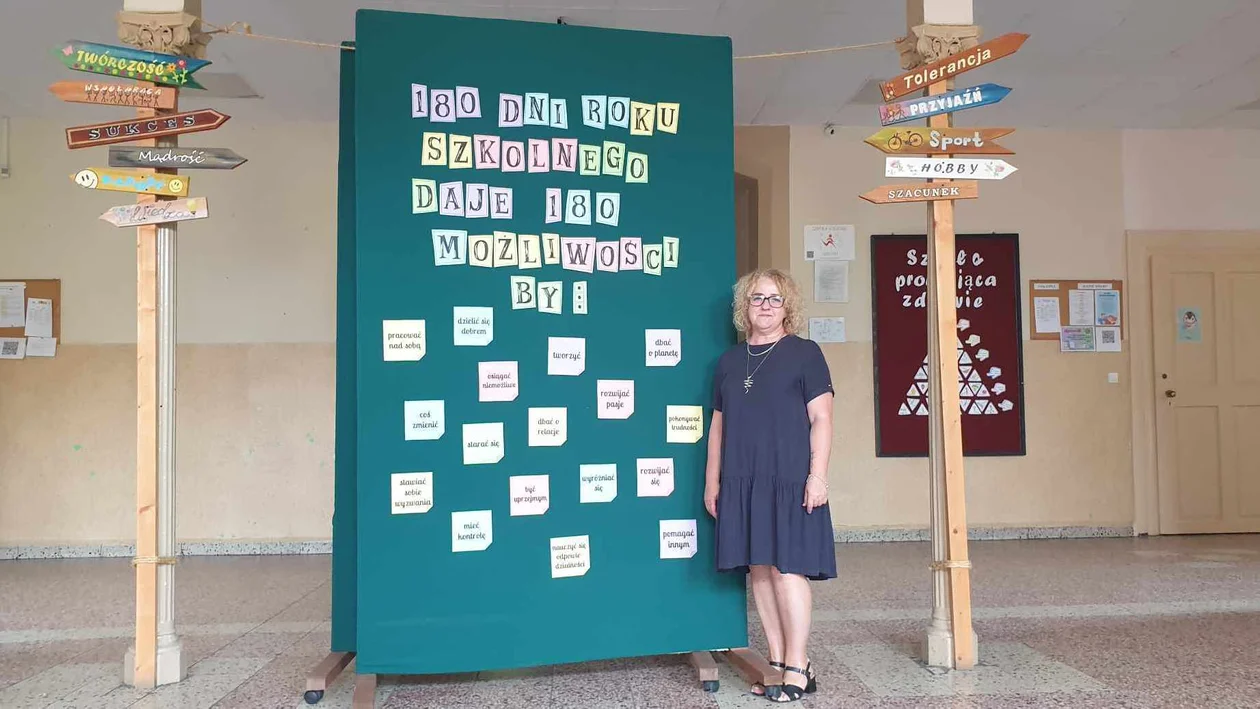 TWÓRCZOŚĆ
WSPÓŁPRACA
SUKCES
Mądrość
180 DNI ROKU
SZKOLNEGO
DAJE 180
MOŻLIWOŚCI
BY:
pracować
nad sobą
dzielić się
dobrem
tworzyć
dbać
o planetę
osiągać
niemożliwe
rozwijać
pasje
coś
zmienić
starać się
dbać o
relacje
pokonywać
trudności
stawiać
sobie
wyzwania
być
uprzejmym
wyróżniać
się
rozwijać
się
mieć
kontrolę
nauczyć się
odpowie
dzialności
pomagać
innym
Tolerancja
PRZYJAŹŃ
Sport
HOBBY
SZACUNEK
Szkoła
promująca
zdrowie